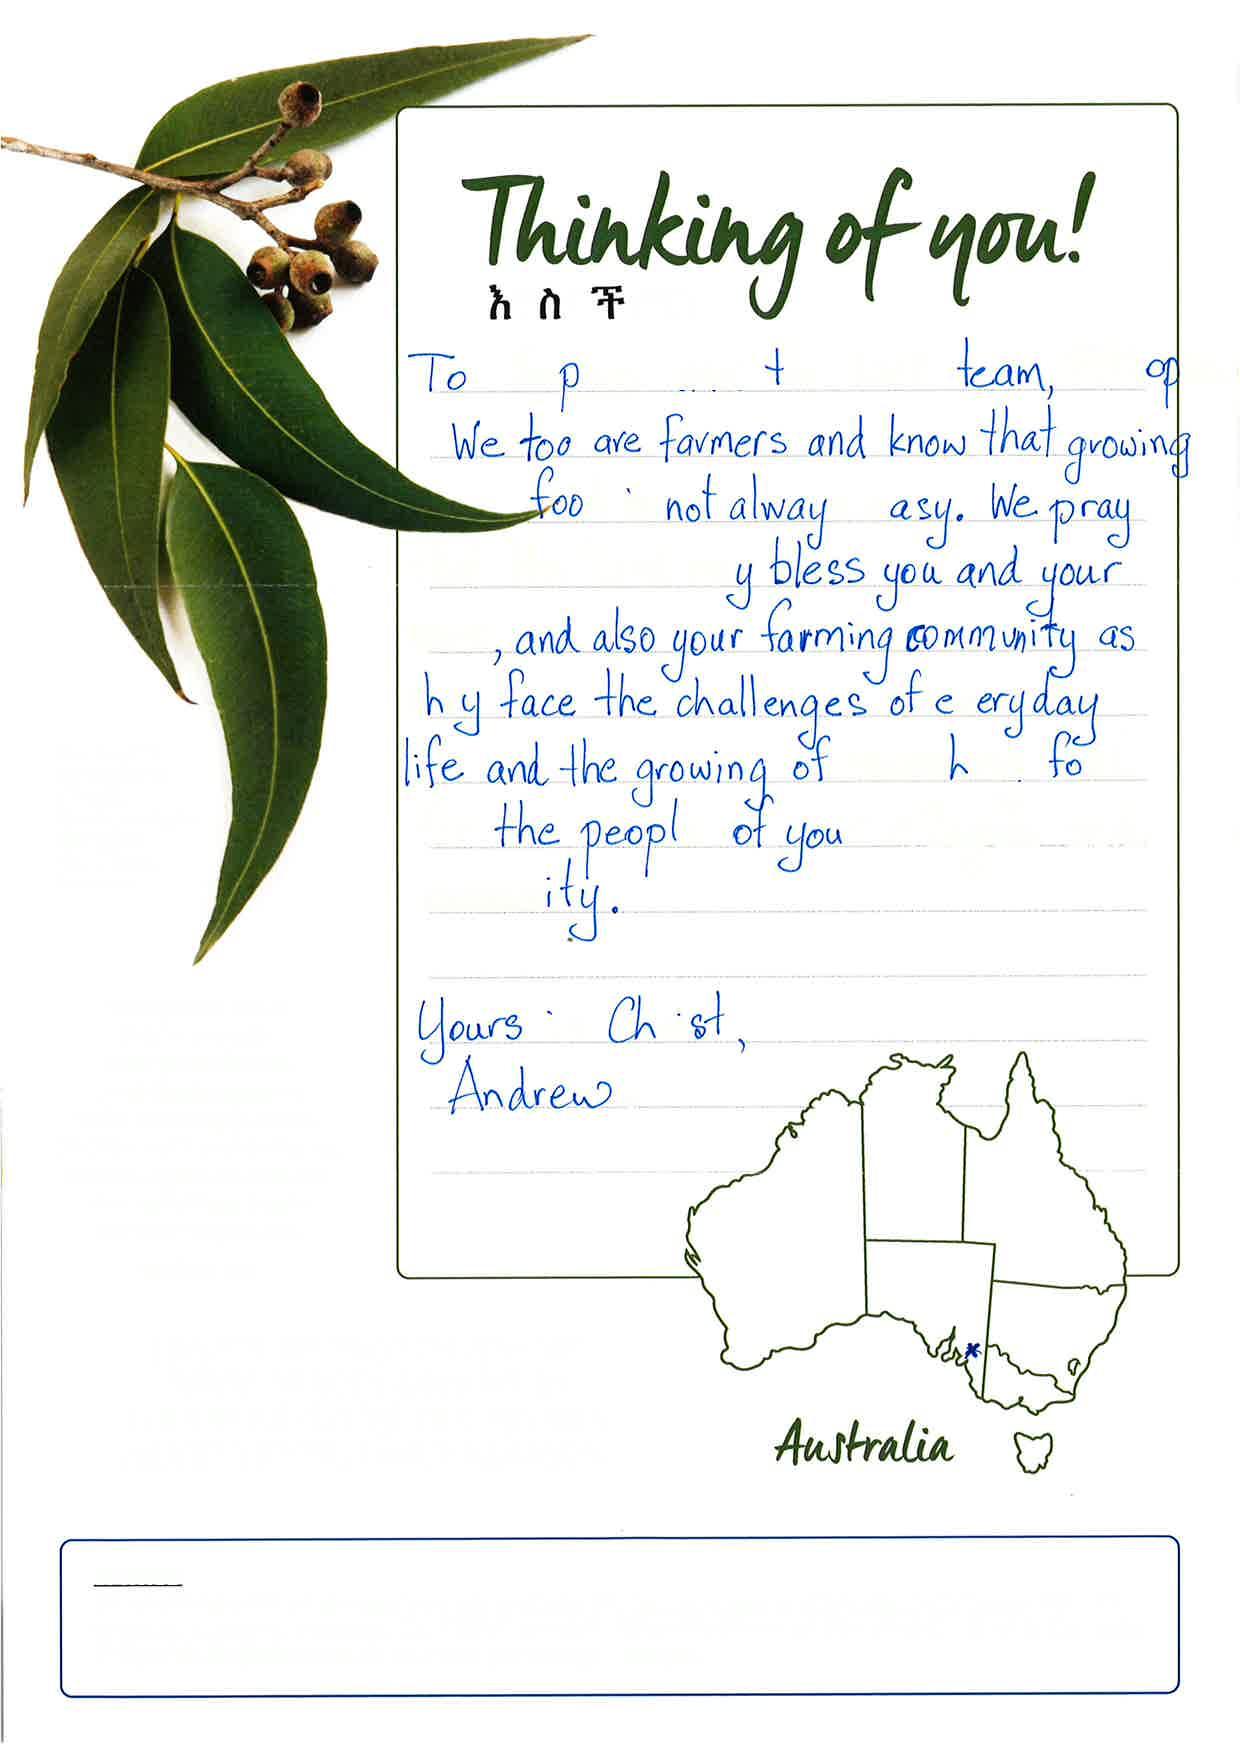 Thinking of you!
እ ስ ች
To p t team, op
We too are farmers and know that growing
foo not alway asy. We pray
y bless you and your
, and also your farming community as
h y face the challenges of e eryday
life and the growing of h fo
the peopl of you
ity.
Yours Ch st,
Andrew
Australia